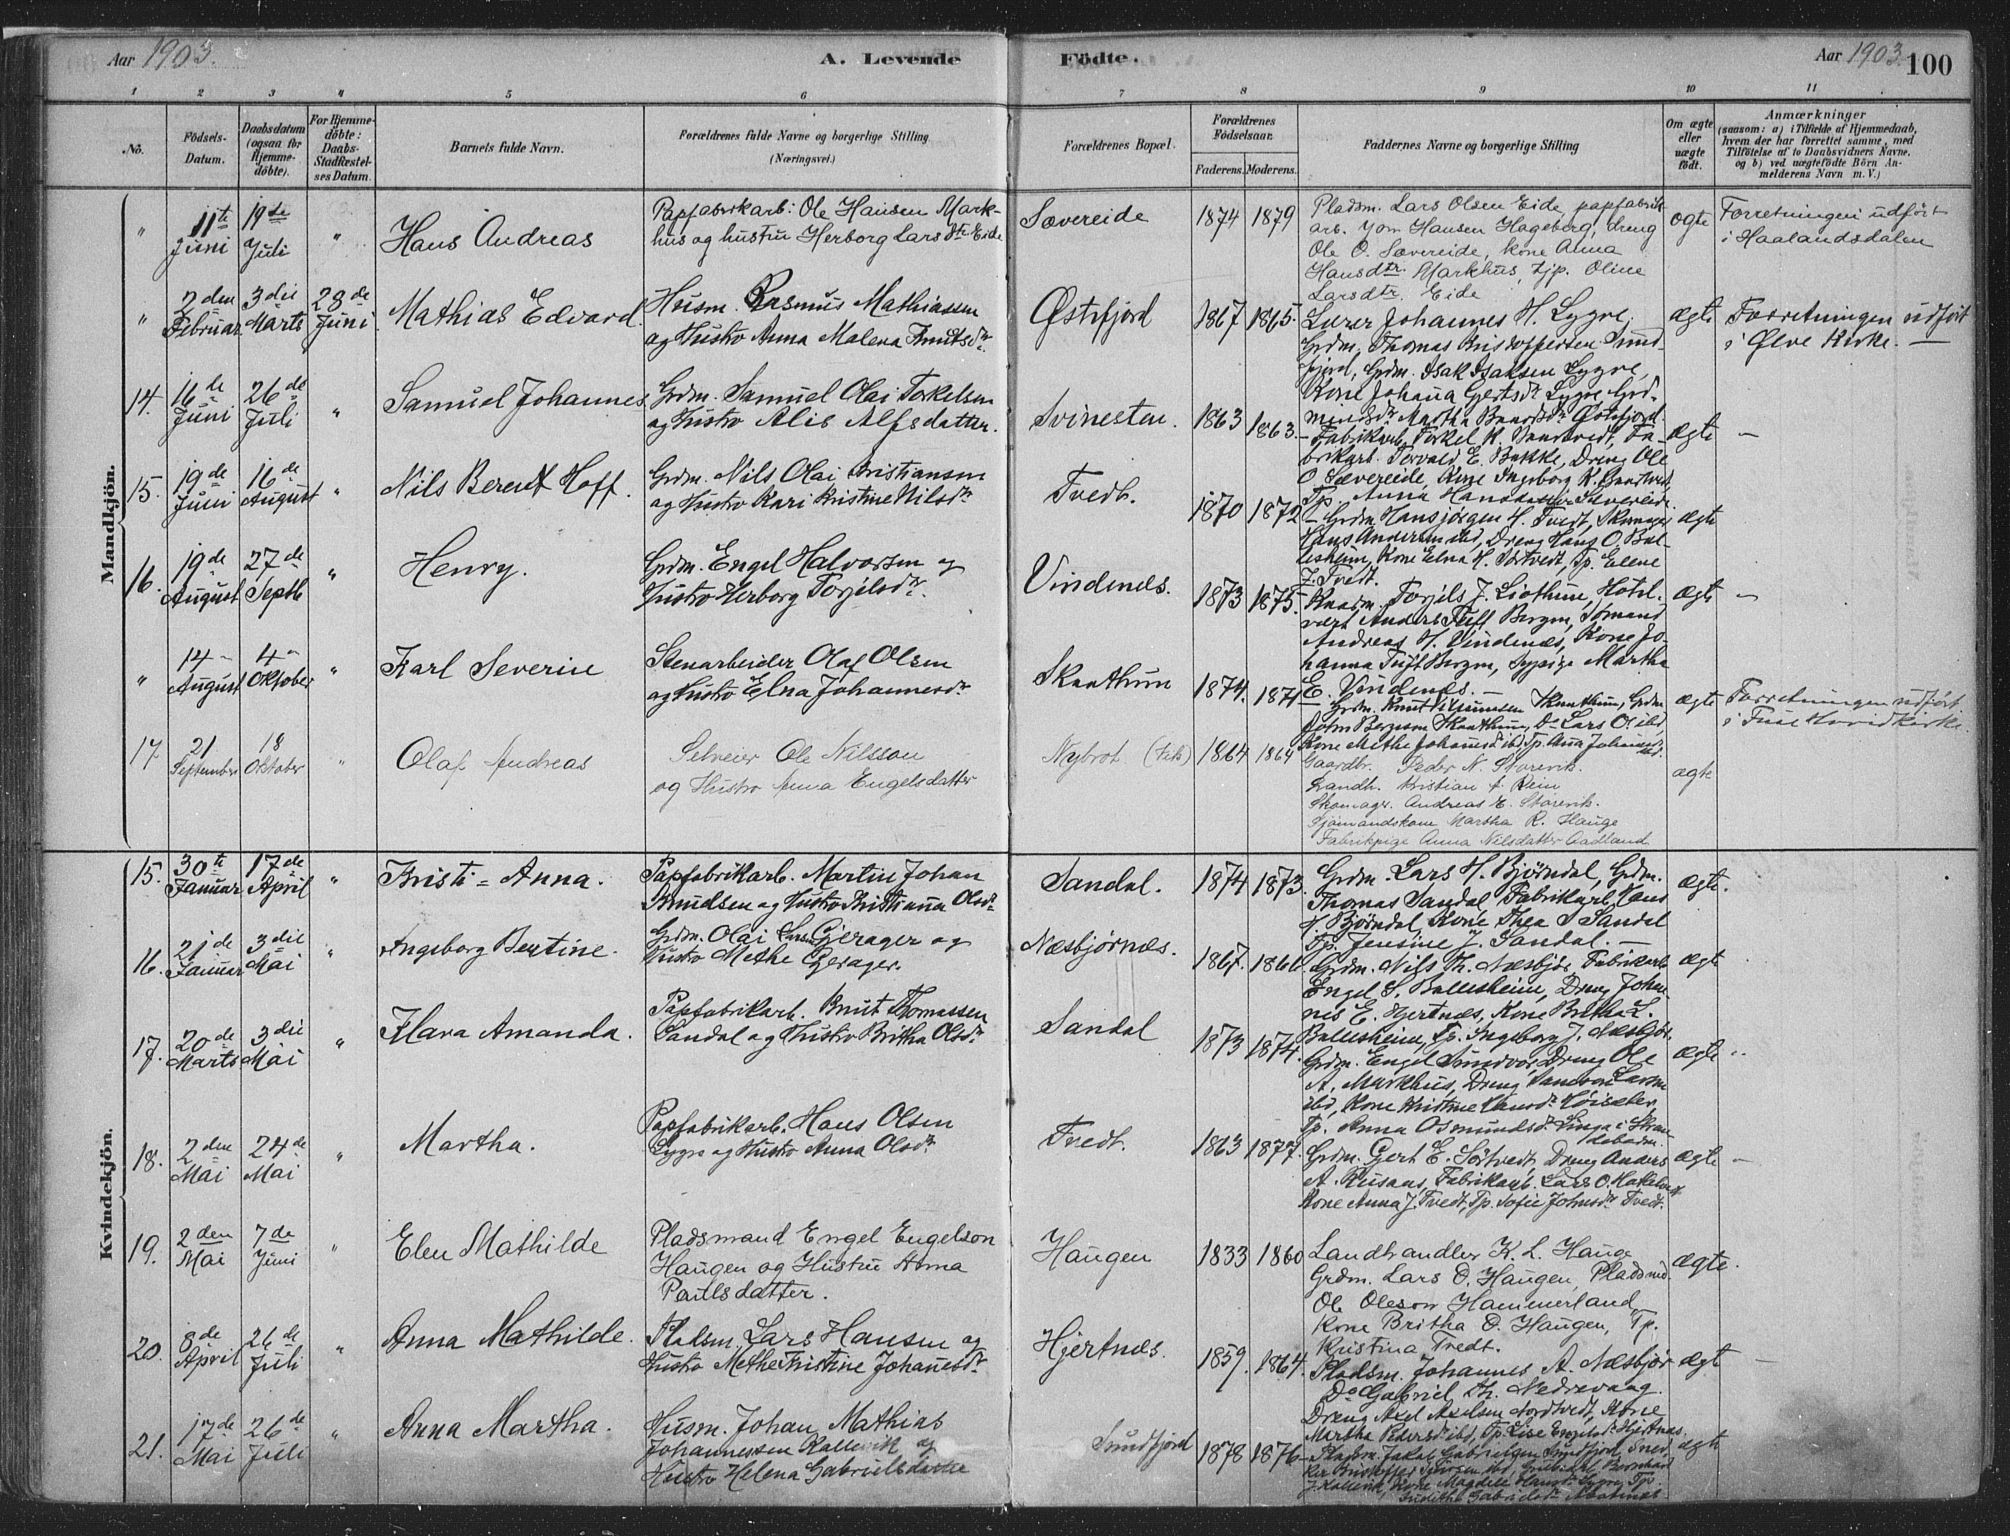 Aar 1903.
A. Levende
Födte.
Aar 1903.
100
1 2 3 4 5 6 7 8 9 10 11
No.
Födsels-Datum.
Daabsdatum (ogsaa for Hjemme-döbte).
For Hjemme-döbte: Daabs-Stadfæstel-ses Datum.
Barnets fulde Navn.
Forældrenes fulde Navne og borgerlige Stilling (Næringsvei.)
Forældrenes Bopæl.
Forældrenes Födselsaar.
Faderens. Moderens.
Faddernes Navne og borgerlige Stilling
Om ægte eller uægte födt.
Anmærkninger
(saasom: a) i Tilfælde af Hjemmedaab, hvem der har forrettet samme, med Tilföielse af to Daabsvidners Navne, og b) ved uægtefödte Börn Anmelderens Navn m. V.)
Mandkjön.
" 11te Juni 19de Juli " Hans Andreas
Papfabrikarb: Ole Hansen Mark-
hus og hustru Herborg Lars dtr Eide
Sævereide 1874 1879
Pladsm. Lars Olsen Eide, papfabrik-
arb. Jon Hansen Hageberg, dreng
Ole O. Sævereide, kone Anna
Hansdtr. Markhus, tjp. Oline
Larsdtr. Eide
ægte
Forretningen udført
i Haalandsdalen
" 2den Februar 3die Marts 28de Juni Mathias Edvard.
Husm. Rasmus Mathiassen
og Hustro Anna Malena Knutsdr.
Østefjord 1867 1865
Lærer Johannes H. Lygre.
Grdm. Thomas Kristoffersen Sund-
fjord, Grdm. Isak Isaksen Lygre,
Kone Johanna Gertsdr. Lygre
Martha Østefjord.
ægte
Forretningen udført
i Ølve Kirke.
14. 16de Juni 26de Juli " Samuel Johannes
Grdm. Samuel Olai Torkelsen
og Hustro Alis Alfsdatter.
Svinesten. 1863 1863
Fabrikarb. Torkel K. Fa-
brikarb. Torvald E. Bakke, Dreng Ole
O. Sævereide, Kone Ingeborg K.
Tp. Anna Hansdatter Sævereide.
ægte –
15. 19de Juni 16de August " Nils Berent Hoff.
Grdm. Nils Olai Kristiansen
og Hustro Kari Kristine Nilsdr
Tvedt. 1870 1872
Grdm. Hansjørgen H. Tvedt, Skomager
Hans Andersen ibd, Dreng Hans O. Bal-
lesheim, Kone Elna H. Sørtvedt, Tp. Ellene
J. Tvedt.
ægte
16. 19de August 27de Septb " Henry.
Grdm. Engel Halvorsen og
Hustro Herborg Torjelsdr.
Vindenes. 1873 1875.
Torjels J. Liothun, Hotel-
vært Anders Tuft Bergen, Sømand
Andreas H. Vindenes, Kone Jo-
hanna Tuft Bergen, Sypige Martha
E. Vindenes. –
ægte –
" 14 August 4 Oktober " Karl Severin
Stenarbeider Olaf Olsen
og Hustro Elna Johannesdr
Skaathun 1874. 1871
Grdm. Knut Skaathun, Grdm.
John Skaathun, Do Lars O. ibd,
Kone Mette Johannesd ibd, Tp. Anna Johannesd ibd.
ægte
Forretningen udført
i Fuse Kirke.
17 21 September 18 Oktober " Olaf Andreas
Selveier Ole Nilsson
og Hustro Anna Engelsdatter
Nybrot 1864 1864
Gaardbr. Peder N. Storevik.
Landh. Kristian J. Rein
Skomager. Andreas E. Storevik.
Sjømandskone Martha R. Hauge
Fabrikpige Anna Nilsdatter Aadland
ægte
Kvindekjön.
15. 30te Januar 17de April " Kristi = Anna.
Papfabrikarb. Martin Johan
Knudsen og Hustro Kristianna Olsdr
Sandal. 1874 1873.
Grdm. Lars H. Bjørndal, Grdm.
Thomas Sandal Fabrikarb. Hans
H. Bjørndal, Kone Thea S Sandal
Tp. Jensine J. Sandal. –
ægte.
16. 21de Januar 3die Mai " Ingeborg Bertine.
Grdm. Olai Larsen Gjerager og
Hustro Methe Gjerager.
Næsbjørnæs. 1867. 1866
Grdm. Nils Th. Næsbjør Fabrikarb
Engel S. Ballesheim, Dreng Johan-
nis E. Hjertnæs, Kone Britha L.
Ballesheim, Tp. Ingeborg J. Næsbjør.
ægte
17. 20de Marts 3die Mai " Klara Amanda.
Papfabrikarb. Knut Thomassen
Sandal og Hustro Britha Olsdr
Sandal 1873 1874.
Grdm. Engel Sundvor, Dreng Ole
A. Markhus, Dreng Larsen
ibd, Kone Kristine Hansdr
Tp. Anna Osmundsdr
ægte
18. 2den Mai 24de Mai " Martha.
Papfabrikarb. Hans Olsen
Lygre og Hustro Anna Olsdr
Tvedt. 1863 1877.
Grdm. Gert E. Sørtvedt, Dreng Anders
A. Fabrikarb. Lars O.
Kone Anna J. Tvedt, Tp. Sofie Johnsdr Tvedt.
ægte –
19. 2den Mai 7de Juni " Elen Mathilde
Pladsmand Engel Engelson
Haugen og Hustru Anna
Paulsdatter.
Haugen 1833 1860
Landhandler K. L. Hauge
Grdm. Lars O. Haugen, Pladsmd.
Ole Oleson Hammerland
Kone Britha O. Haugen, Tp.
Kristina Tvedt.
ægte.
20. 8de April 26de Juli " Anna Mathilde.
Pladsm. Lars Hansen og
Hustro Methe Kristine Johannesdr
Hjertnæs. 1859. 1864.
Pladsm. Johannes A. Næsbjør
Do Gabriel Th. Nedrevaag.
Dreng Axel Axelsen Nordtvedt, Kone
Martha Pedersd ibd, Tp. Lise Engelsdr Hjertnæs.
ægte –
21. 17de Mai 26de Juli " Anna Martha.
Husm. Johan Mathias
Johannessen Kallevik og
Hustro Helena Gabrielsdatter
Sundfjord 1878 1876
Pladsm. Jakob Gabrielsen Sundfjord, Sned-
ker Kristoffer ibd, Bernhard
J. Kallevik, Kone Magdele Lygre, Tp.
ægte